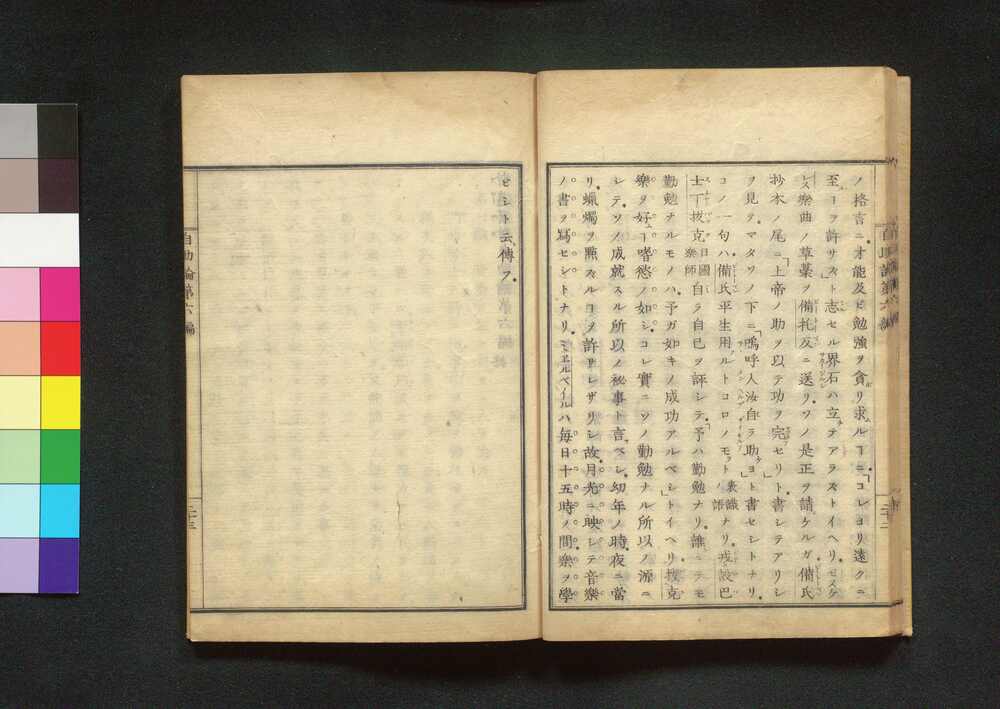 ノ格言ニ才能及ビ勉強ヲ貪リ求ムルヿニ「コレヨリ遠クニ
至ヿヲ許サズト志セル界石ハ立テアラズトイヘリモスケ
レス樂曲ノ草藁ヲ備托反ニ送リソノ是正ヲ請ケルガ備氏
抄本ノ尾ニ「上帝ノ助ヲ以テ功ヲ完セリト書シテアリシ
ヲ見テマタソノ下ニ「嗚呼人汝自ラ助ヨト」書セシトナリ
コノ一句ハ備氏平生用ルトコロノモットナリ戎設巴
士丁拔克日國樂師自ラ自己ヲ評シテ「予ハ勤勉ナリ誰ニテモ
勤勉ナルモノハ予ガ如キノ成功アルベシ」トイヘリ拔克
樂ヲ好ヿ嗜慾ノ如シコレ實ニソノ勤勉ナル所以ノ源ニ
シテソノ成就スル所以ノ祕事ト言ベシ幼年ノ時夜ニ當
リ蝋燭ヲ㸃スルヿヲ許サレザリシ故月光ニ映シテ音樂
ノ書ヲ寫セシトナリミエルベイルハ毎日十五時ノ間樂ヲ學
ビシト云傳フ
自助論第六編
二十三